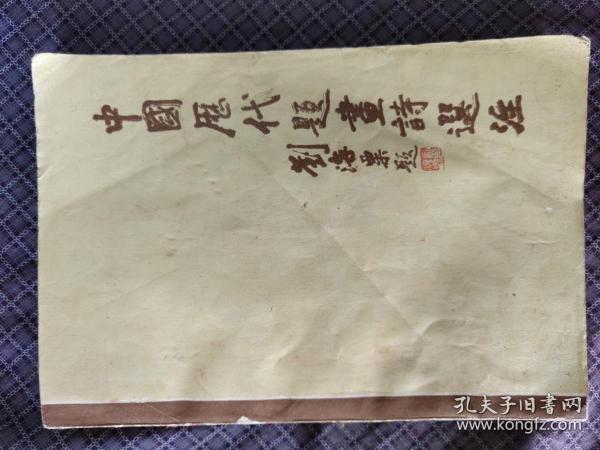 中國歷代題畫詩選注
劉海粟題
孔夫子旧书网
www.kongfz.com